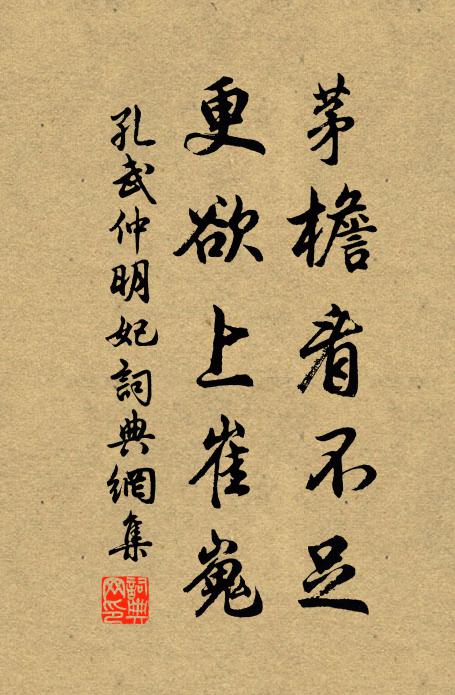 茅檐看不足
更欲上崔嵬
孔武仲明妃詞典網集
詞典網印